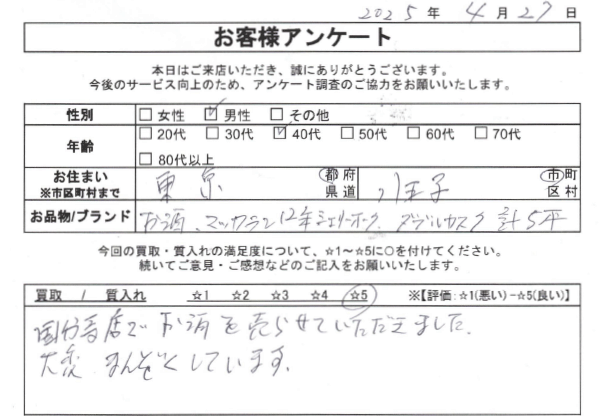 2025年 4月 27日
お客様アンケート
本日はご来店いただき、誠にありがとうございます。
今後のサービス向上のため、アンケート調査のご協力をお願いいたします。
性別 □ 女性 ☑ 男性 □ その他
年齢 □ 20代 □ 30代 ☑ 40代 □ 50代 □ 60代 □ 70代
□ 80代以上
お住まい ※市区町村まで 東京 都府県道 八王子 市町区村
お品物/ブランド お酒、マッカラン12年シェリーオーク、ダブルカスク 計5本
今回の買取・質入れの満足度について、☆1～☆5に○を付けてください。
続いてご意見・ご感想などのご記入をお願いいたします。
買取 / 質入れ ☆1 ☆2 ☆3 ☆4 ☆5 ※【評価:☆1(悪い)-☆5(良い)】
国分寺店でお酒を売らせていただきました。
大変まんぞくしています。